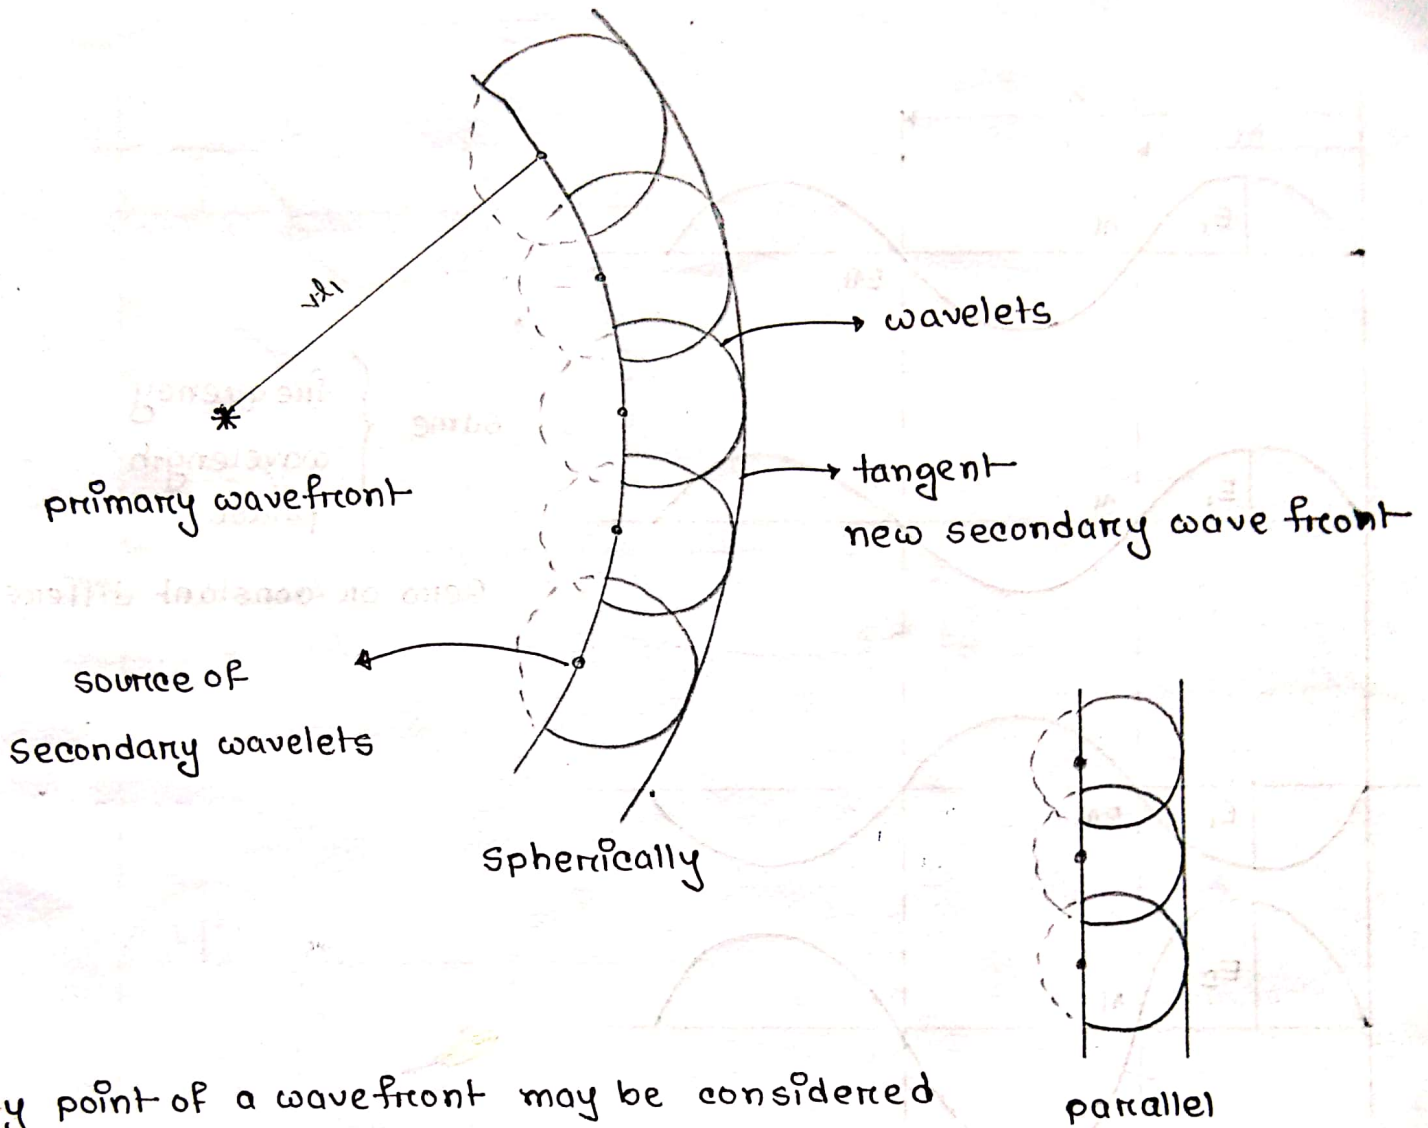 wavelets
tangent
new secondary wave front
primary wavefront
source of
secondary wavelets
spherically
parallel
y point of a wavefront may be considered